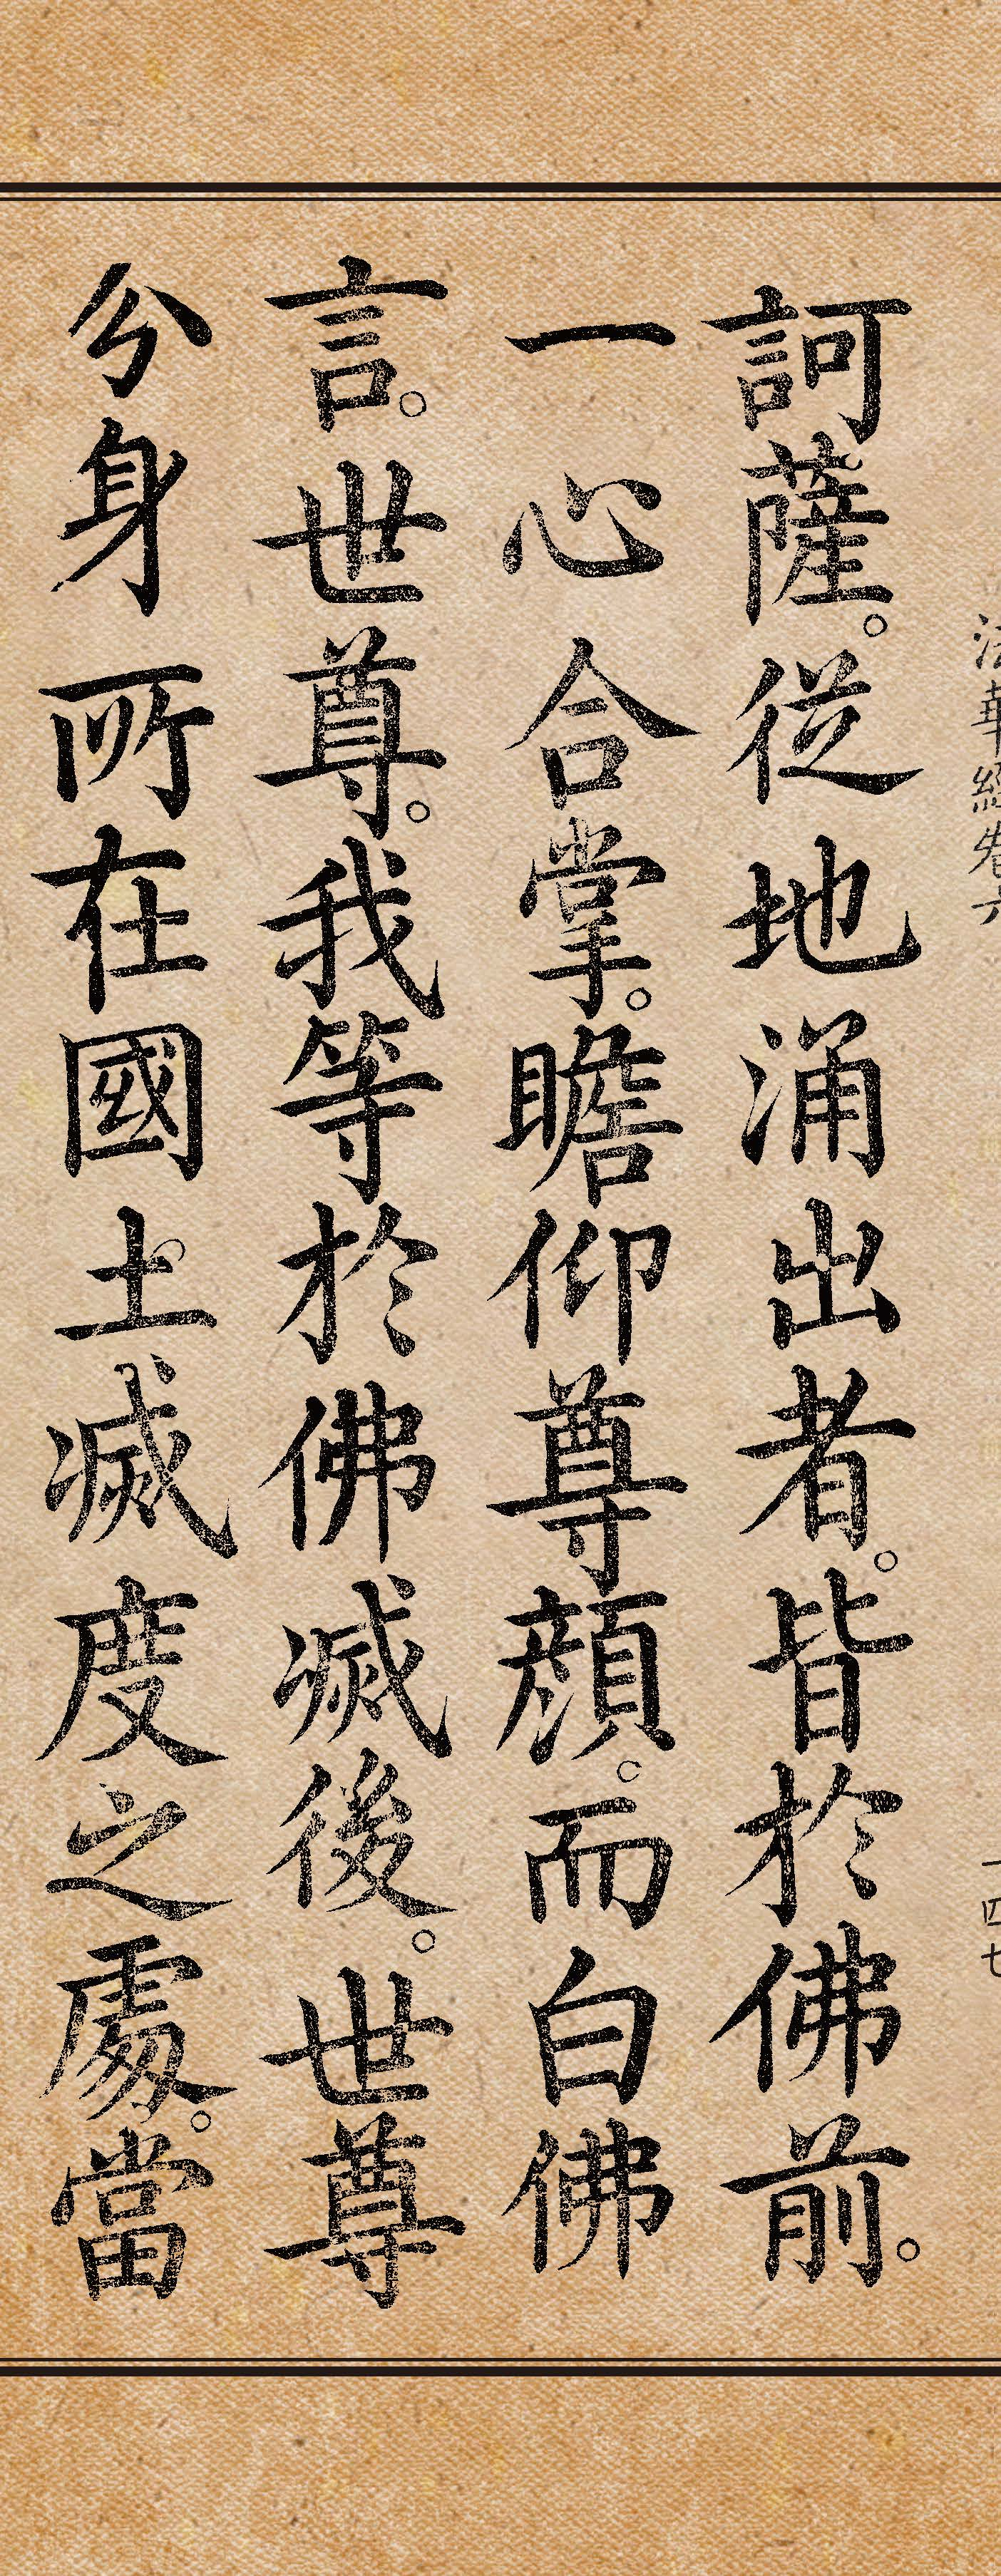 法華經卷六
一四七
訶薩。從地涌出者。皆於佛前。
一心合掌。瞻仰尊顏。而白佛
言。世尊。我等於佛滅後。世尊
分身所在國土。滅度之處。當